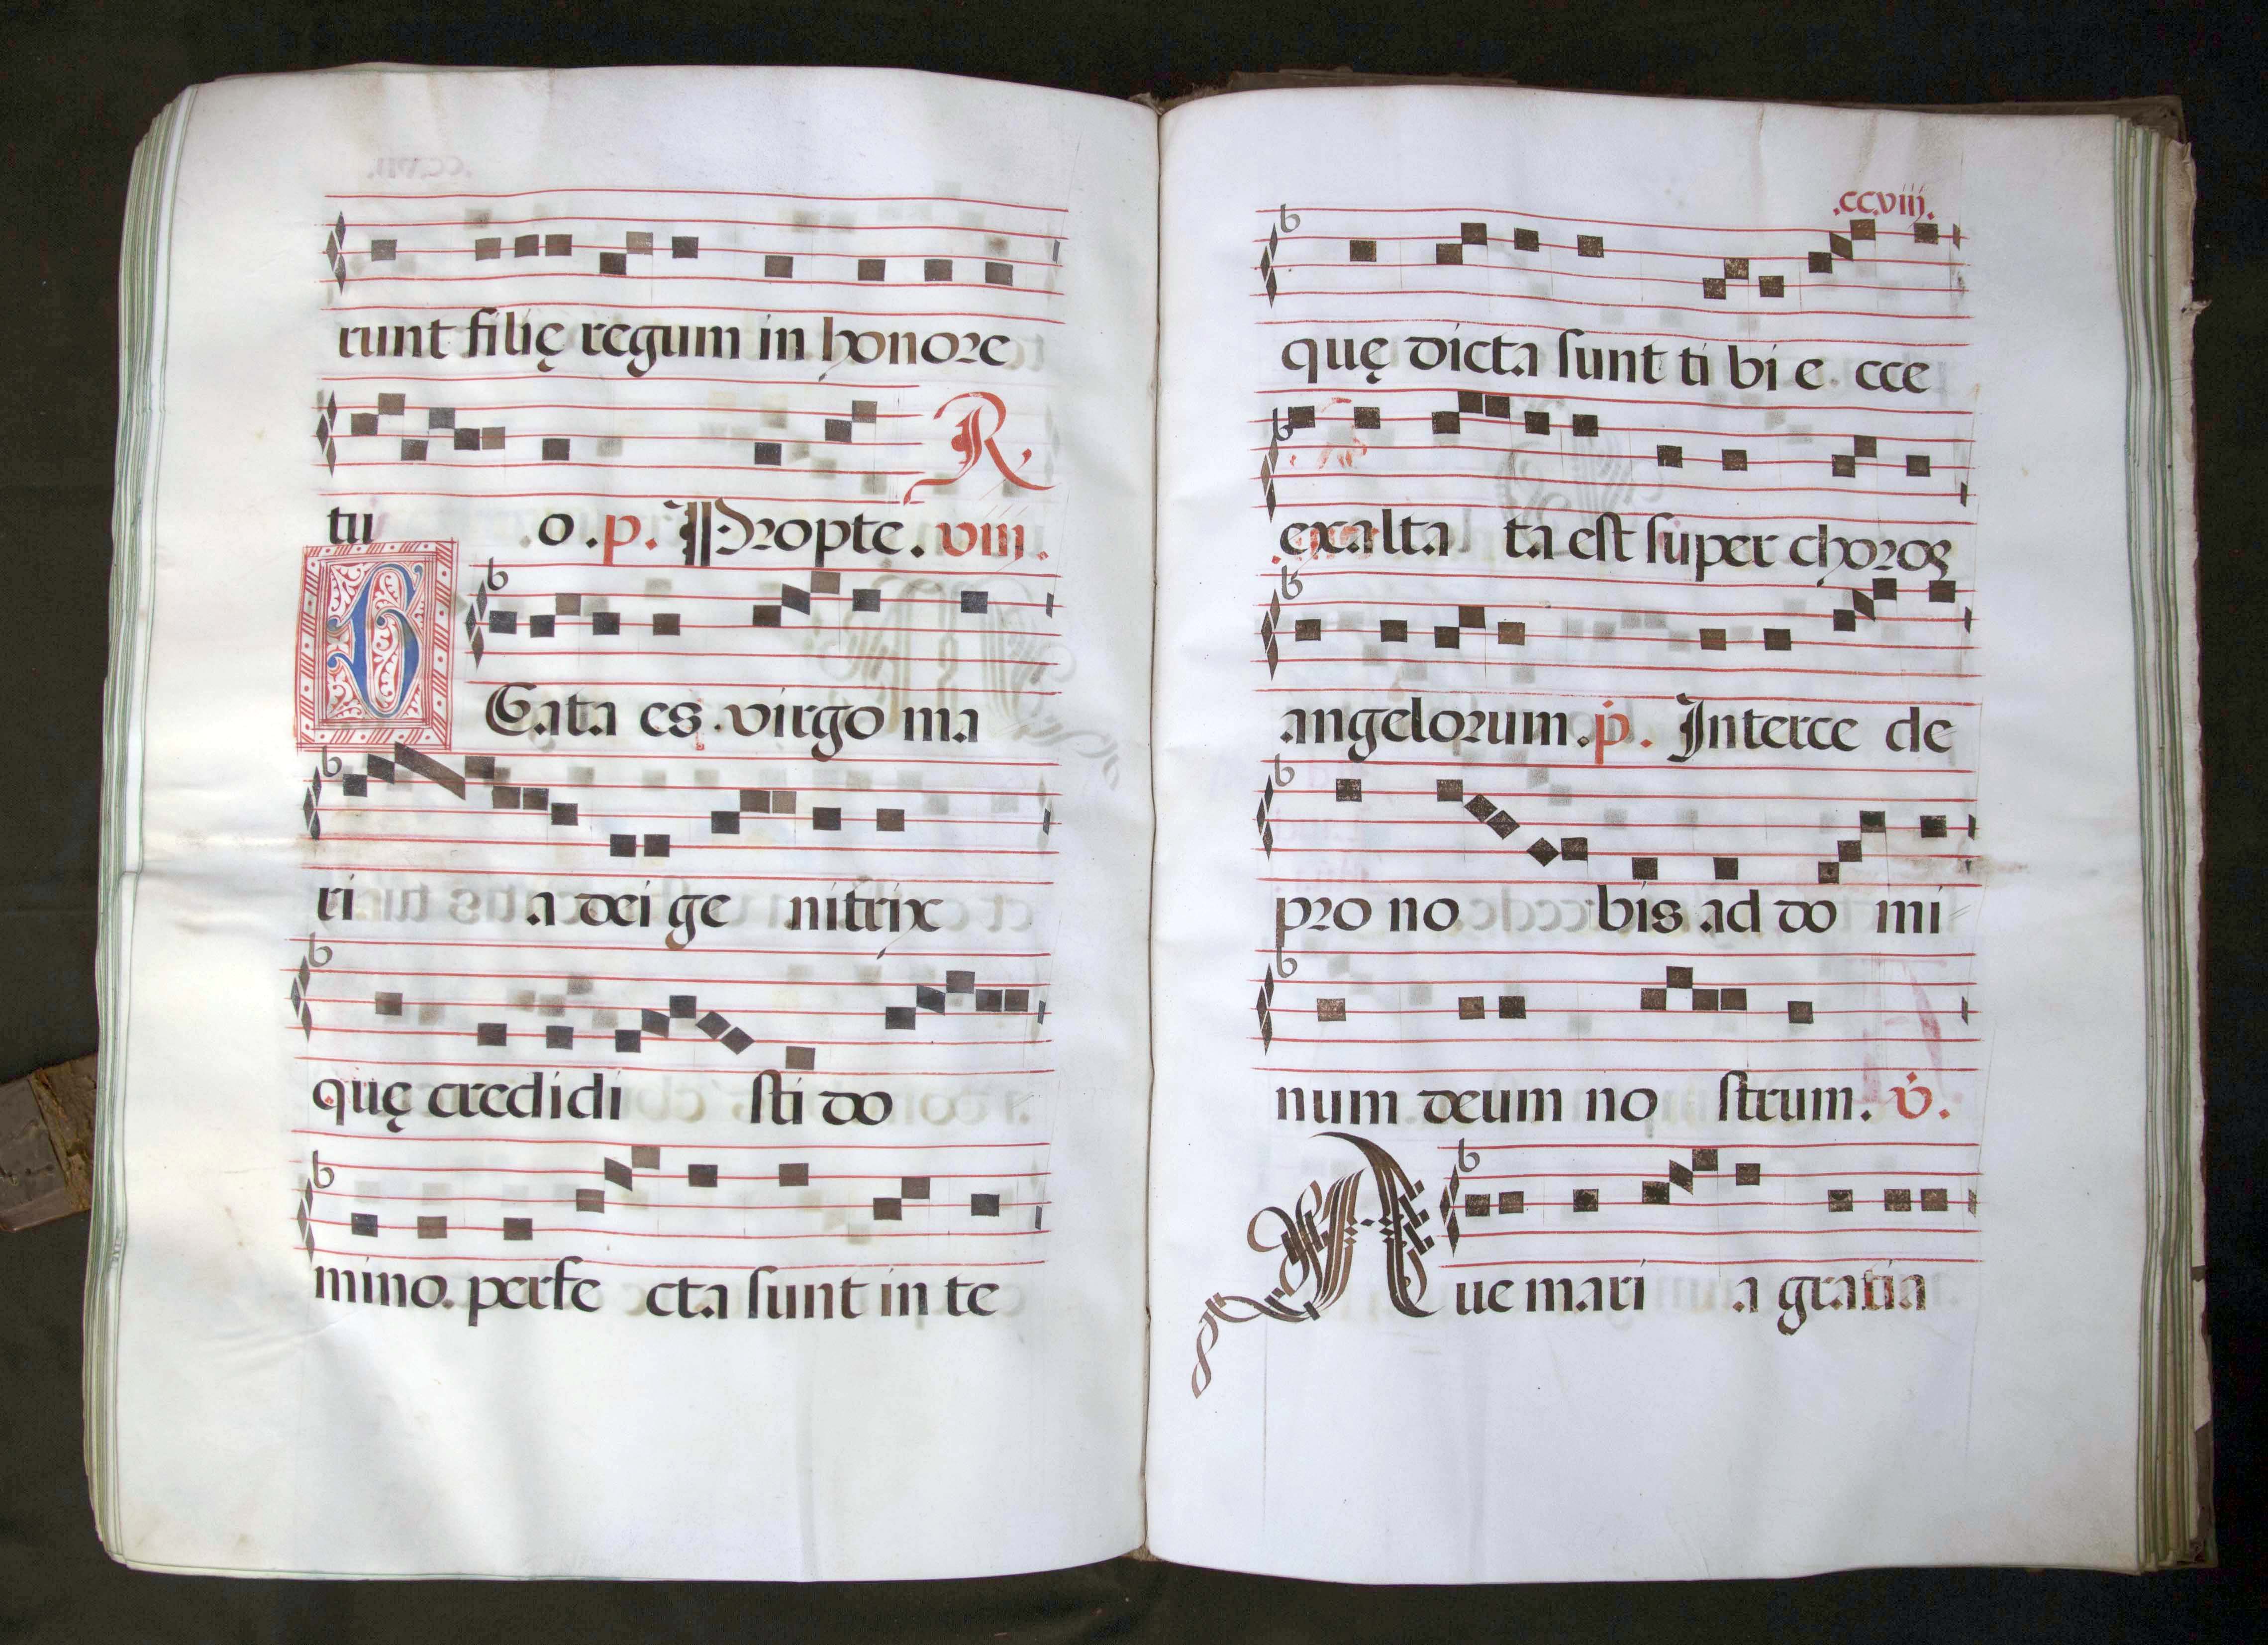 runt filię regum in honore
tu o . p . Propte . viii .
B Eata es . virgo ma
ri a dei ge nitrix
quę credidi sti do
mino . perfe cta sunt in te
.ccviij.
quę dicta sunt ti bi e cce
exalta ta est super choros
angelorum . p . Interce de
pro no bis ad do mi
num deum no strum . v .
Aue mari a gratia